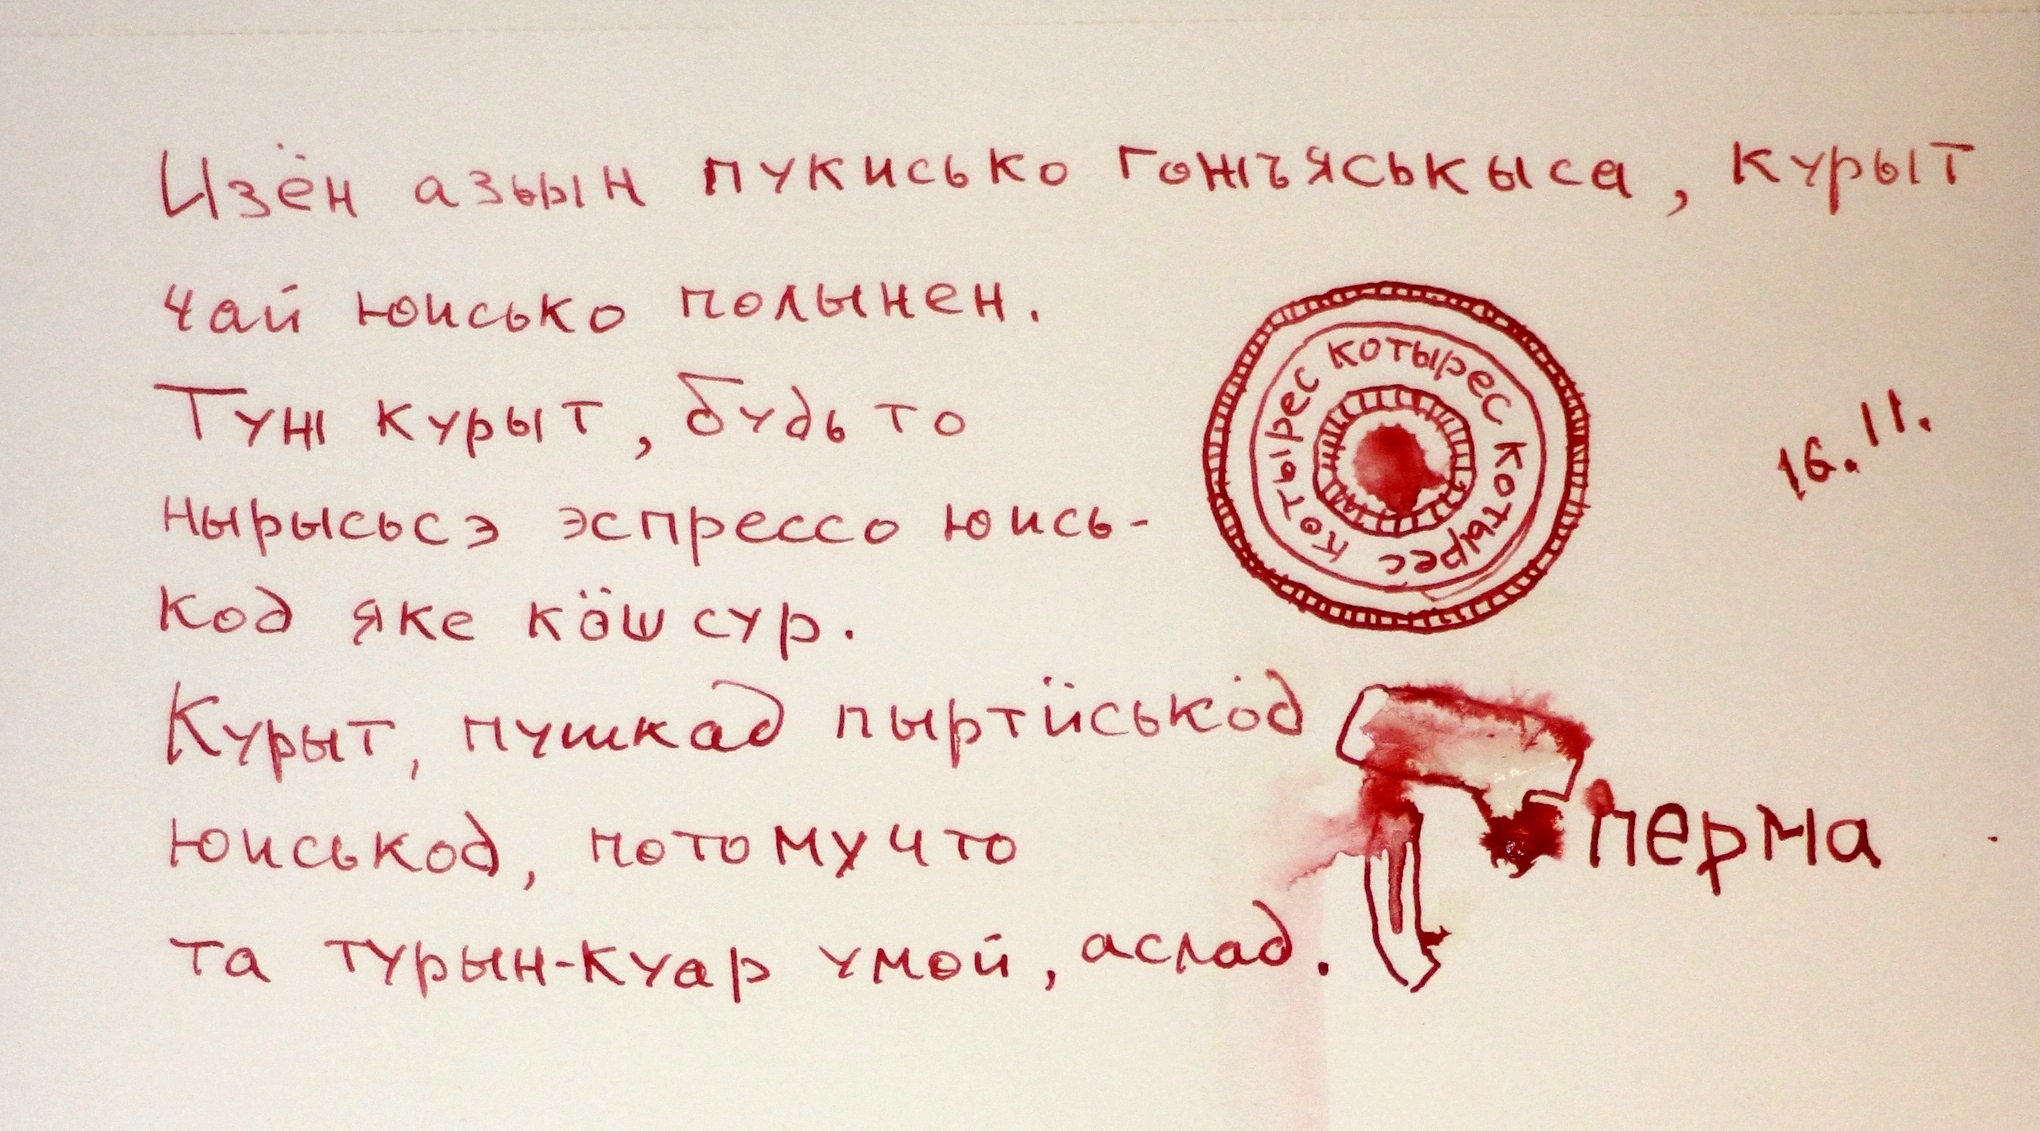 Изён азьын пукисько гожъяськыса, курыт
чай юисько полынен.
Туж курыт, будь то
нырысьсэ эспрессо юись-
код яке кӧш сур.
Курыт, пушкад пыртӥськод
юиськод, потому что
та турын-куар умой, аслад.
котырес котырес котырес
16.11.
перма